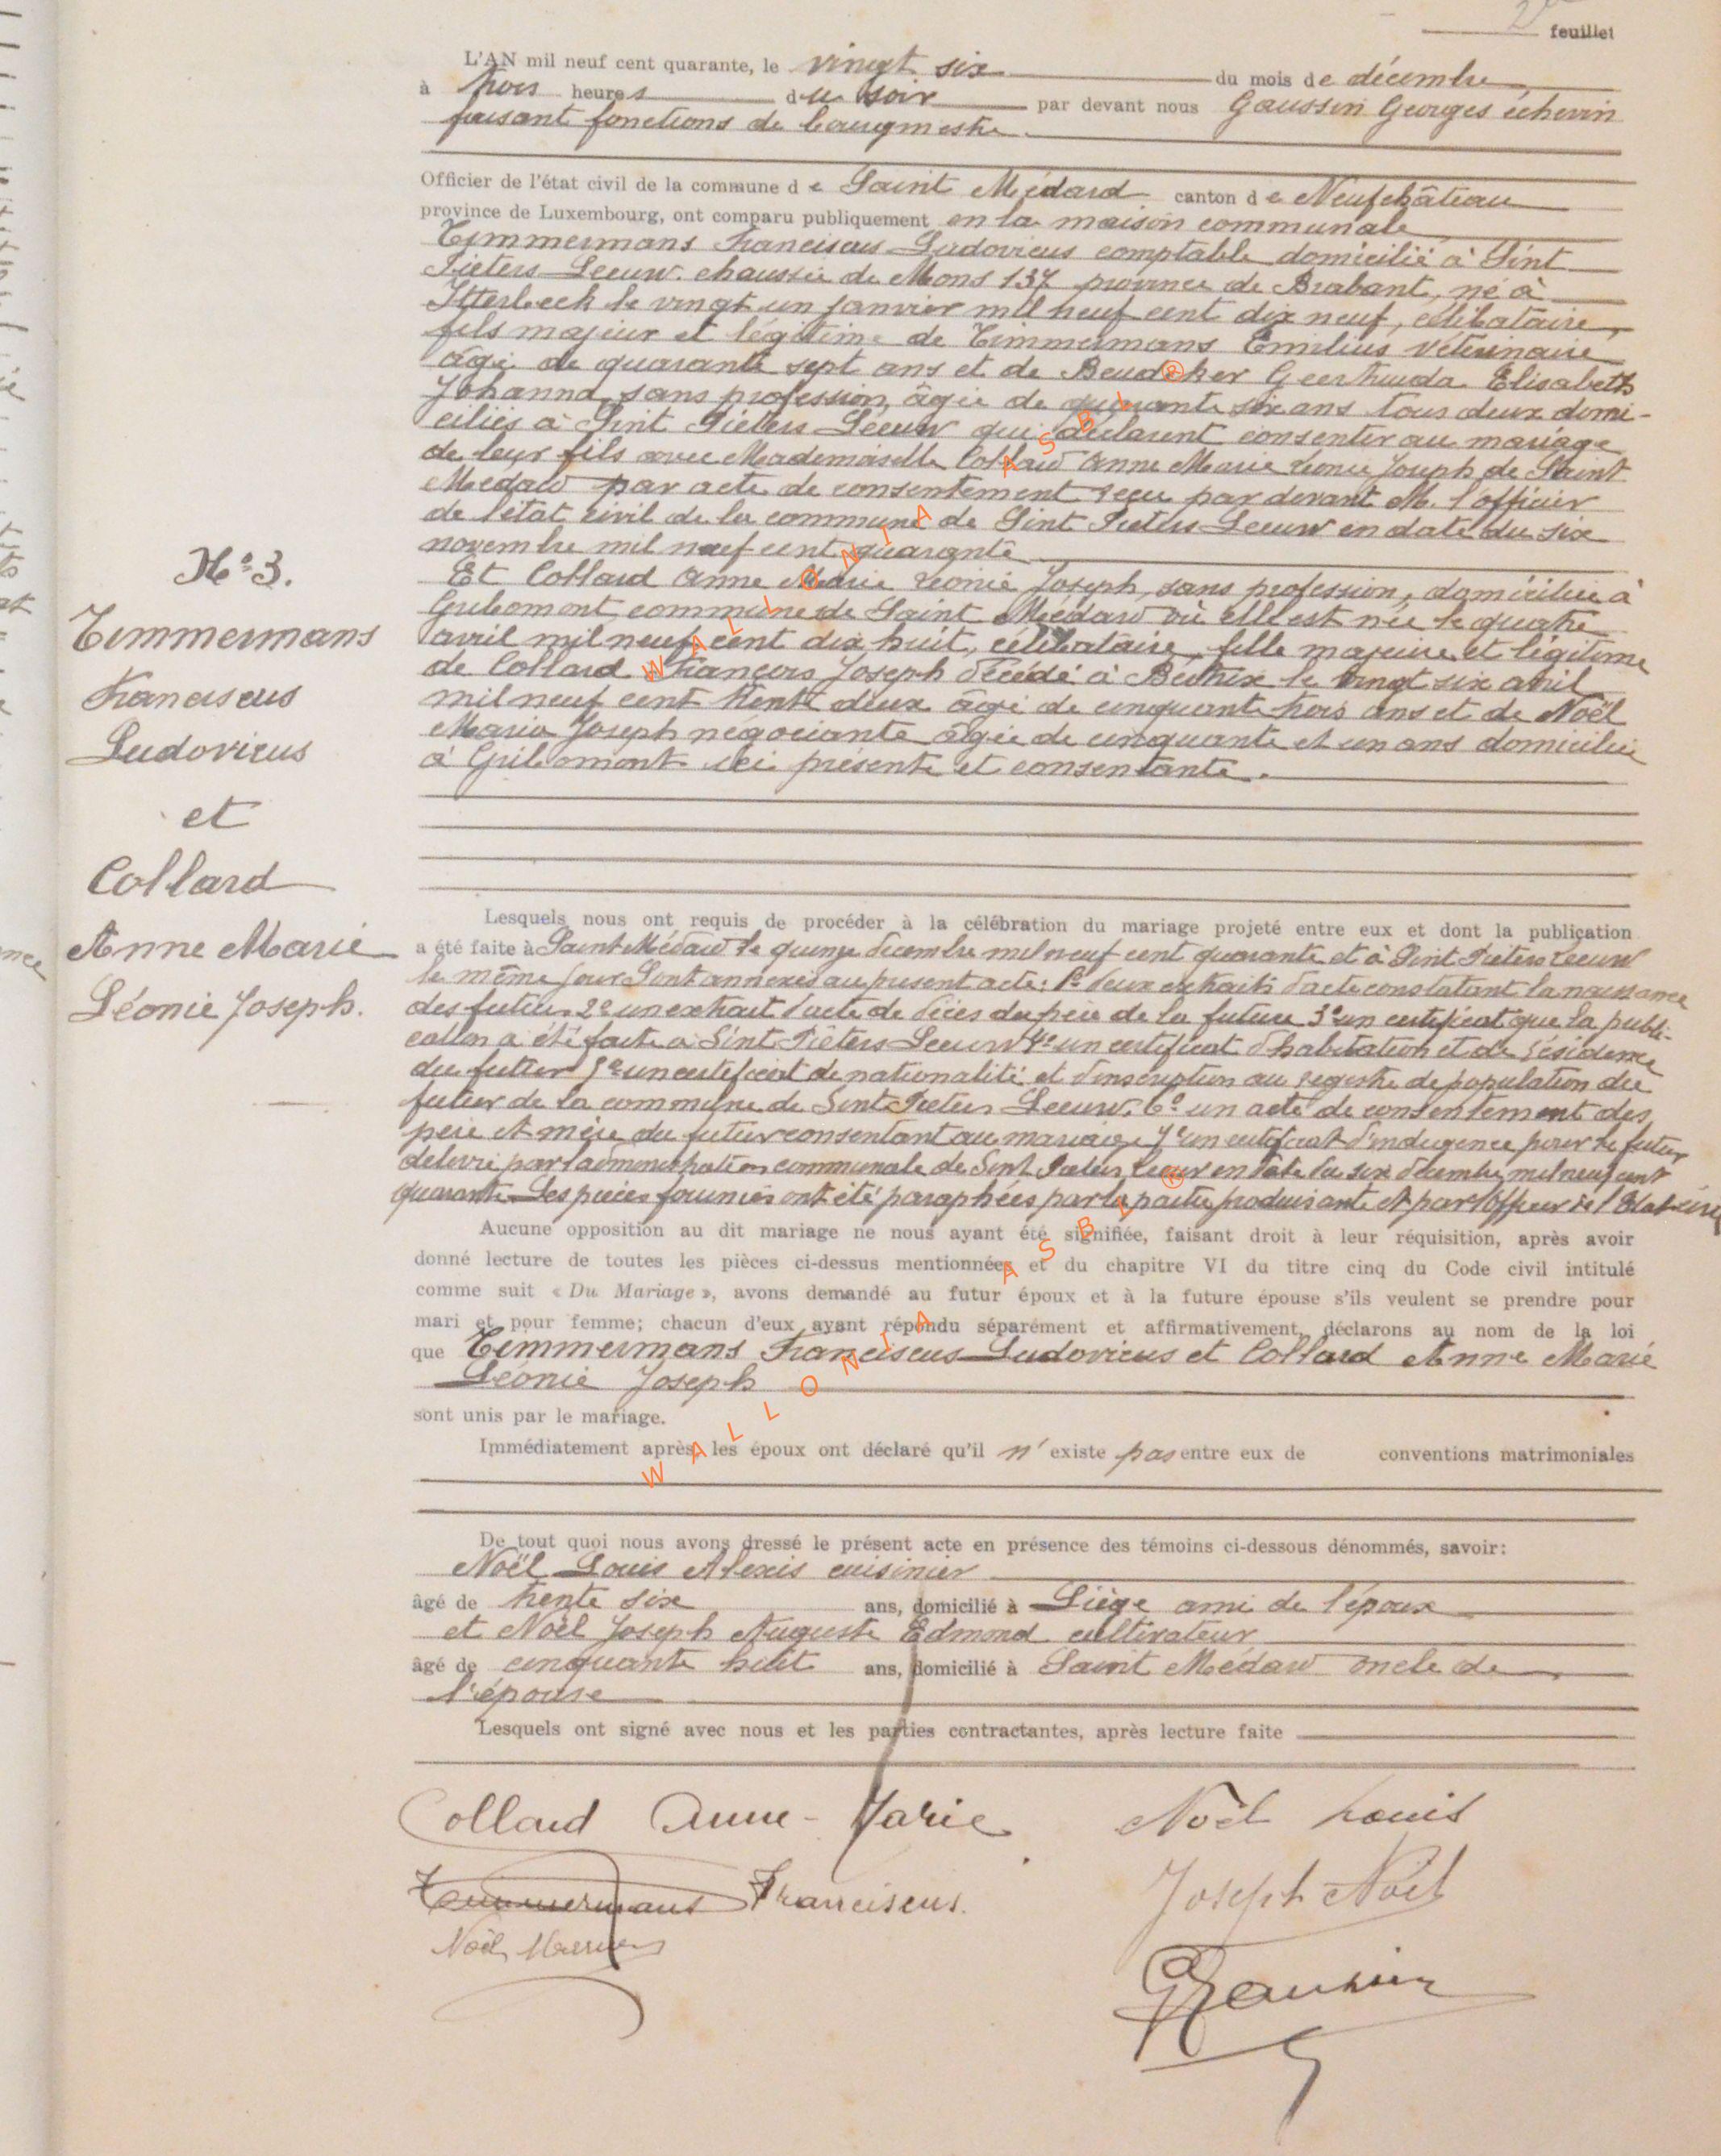 2e feuillet
L'AN mil neuf cent quarante, le vingt six du mois de décembre
à trois heures du soir par devant nous Gaussin Georges échevin
faisant fonctions de bourgmestre
Officier de l'état civil de la commune de Saint Médard canton de Neufchâteau
province de Luxembourg, ont comparu publiquement en la maison communale
Timmermans Franciscus Ludovicus comptable domicilié à Sint
Pieters Leeuw chaussée de Mons 137 province de Brabant, né à
Itterbeek le vingt un janvier mil neuf cent dix neuf, célibataire,
fils majeur et légitime de Timmermans Emilius vétérinaire
âgé de quarante sept ans et de Geertruida Elisabeth
Johanna, sans profession, âgée de quarante six ans tous deux domi-
ciliés à Sint Pieters Leeuw qui déclarent consentir au mariage
de leur fils avec Mademoiselle Collard Anne Marie Léonie Joseph de Saint
Médard par acte de consentement reçu par devant M. l'officier
de l'état civil de la commune de Sint Pieters Leeuw en date du six
novembre mil neuf cent quarante
Et Collard Anne Marie Léonie Joseph, sans profession, domiciliée à
Gribomont commune de Saint Médard où elle est née le quatre
avril mil neuf cent dix huit, célibataire, fille majeure et légitime
de Collard François Joseph décédé à Bertrix le vingt six avril
mil neuf cent trente deux âgé de cinquante trois ans et de Noël
Maria Joseph négociante âgée de cinquante et un ans domiciliée
à Gribomont ici présente et consentante.
N° 3.
Timmermans
Franciscus
Ludovicus
et
Collard
Anne Marie
Léonie Joseph.
Lesquels nous ont requis de procéder à la célébration du mariage projeté entre eux et dont la publication
a été faite à Saint Médard le quinze décembre mil neuf cent quarante et à Sint Pieters Leeuw
le même jour Sont annexés au présent acte: 1° deux extraits d'acte constatant la naissance
des futurs 2° un extrait d'acte de décès du père de la future 3° un certificat que la publi-
cation a été faite à Sint Pieters Leeuw 4° un certificat d'habitation et de résidence
du futur 5° un certificat de nationalité et d'inscription au registre de population du
futur de la commune de Sint Pieters Leeuw. 6° un acte de consentement des
père et mère du futur consentant au mariage 7° un certificat d'indigence pour le futur
délivré par l'administration communale de Sint Pieters Leeuw en date du six décembre mil neuf cent
quarante Les pièces fournies ont été paraphées par la partie produisante et par l'Officier de l'Etat-civil
Aucune opposition au dit mariage ne nous ayant été signifiée, faisant droit à leur réquisition, après avoir
donné lecture de toutes les pièces ci-dessus mentionnées et du chapitre VI du titre cinq du Code civil intitulé
comme suit « Du Mariage », avons demandé au futur époux et à la future épouse s'ils veulent se prendre pour
mari et pour femme; chacun d'eux ayant répondu séparément et affirmativement, déclarons au nom de la loi
que Timmermans Franciscus Ludovicus et Collard Anne Marie
Léonie Joseph
sont unis par le mariage.
Immédiatement après les époux ont déclaré qu'il n'existe pas entre eux de conventions matrimoniales
De tout quoi nous avons dressé le présent acte en présence des témoins ci-dessous dénommés, savoir:
Noël Louis Alexis cuisinier
âgé de trente six ans, domicilié à Liège ami de l'époux
et Noël Joseph Auguste Edmond cultivateur
âgé de cinquante huit ans, domicilié à Saint Médard oncle de
l'épouse
Lesquels ont signé avec nous et les parties contractantes, après lecture faite
Collard Anne-Marie
Noël Louis
Timmermans Franciscus.
Joseph Noël
Noël
GGaussin
WALLONIA ASBL ®
WALLONIA ASBL ®